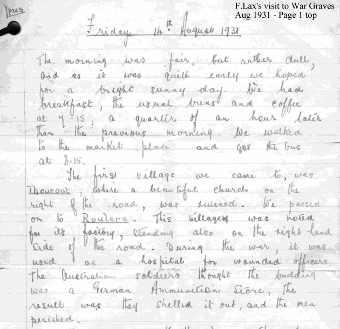 F.Lax's visit to War Graves
Aug 1931 - Page 1 top
Friday 14th August 1931
The morning was fair, but rather dull,
and as it was quite early we hoped
for a bright sunny day. We had
breakfast, the usual buns and coffee
at 7.15; a quarter of an hour later
than the previous morning. We walked
to the market place and got the bus
at 8.15.
The first village we came to, was
Thourout; where a beautiful church on the
right of the road, was . We passed
on to Roulers. This village was noted
for its factory, standing also on the right hand
side of the road. During the war, it was
used as a hospital for wounded officers.
The Australian soldiers thought the building
was a German Ammunition Store, the
result was they shelled it out, and the men
perished.